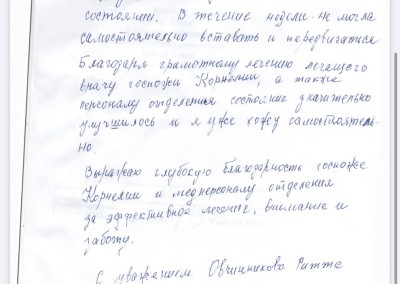 состоянии. В течение недели не могла
самостоятельно вставать и передвигаться
Благодаря грамотному лечению лечащего
врачу госпожи Корнелии, а также
персоналу отделения состояние значительно
улучшилось и я уже хожу самостоятель-
но.
Выражаю глубокую благодарность госпоже
Корнелии и медперсоналу отделения
за эффективное лечение, внимание и
заботу.
С уважением Овчинникова Ритте